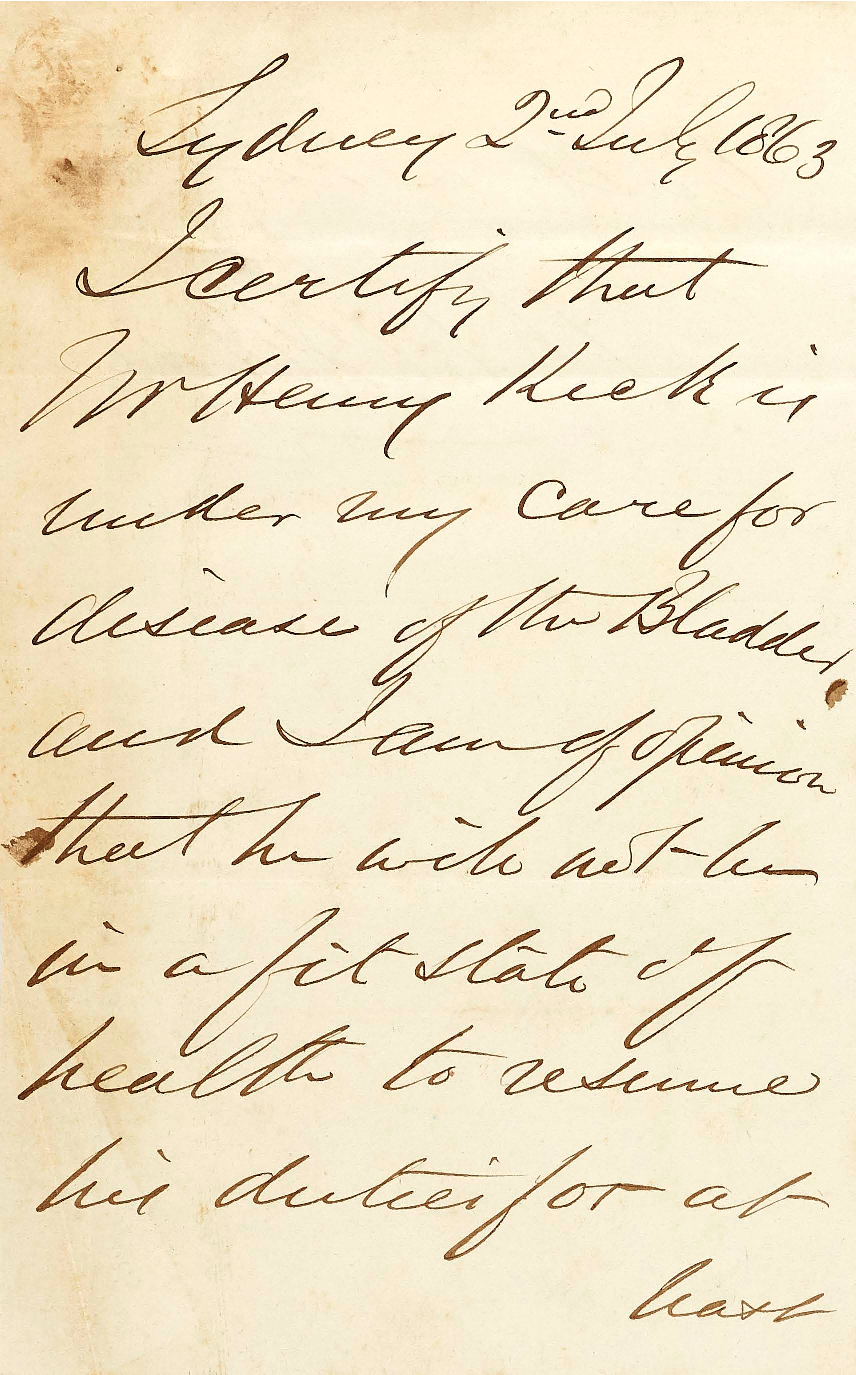 Sydney 2nd July 1863
I certify that
Mr Henry Keck is
under my care for
disease of the Bladder
and I am of opinion
that he will not be
in a fit state of
health to resume
his duties for at
least